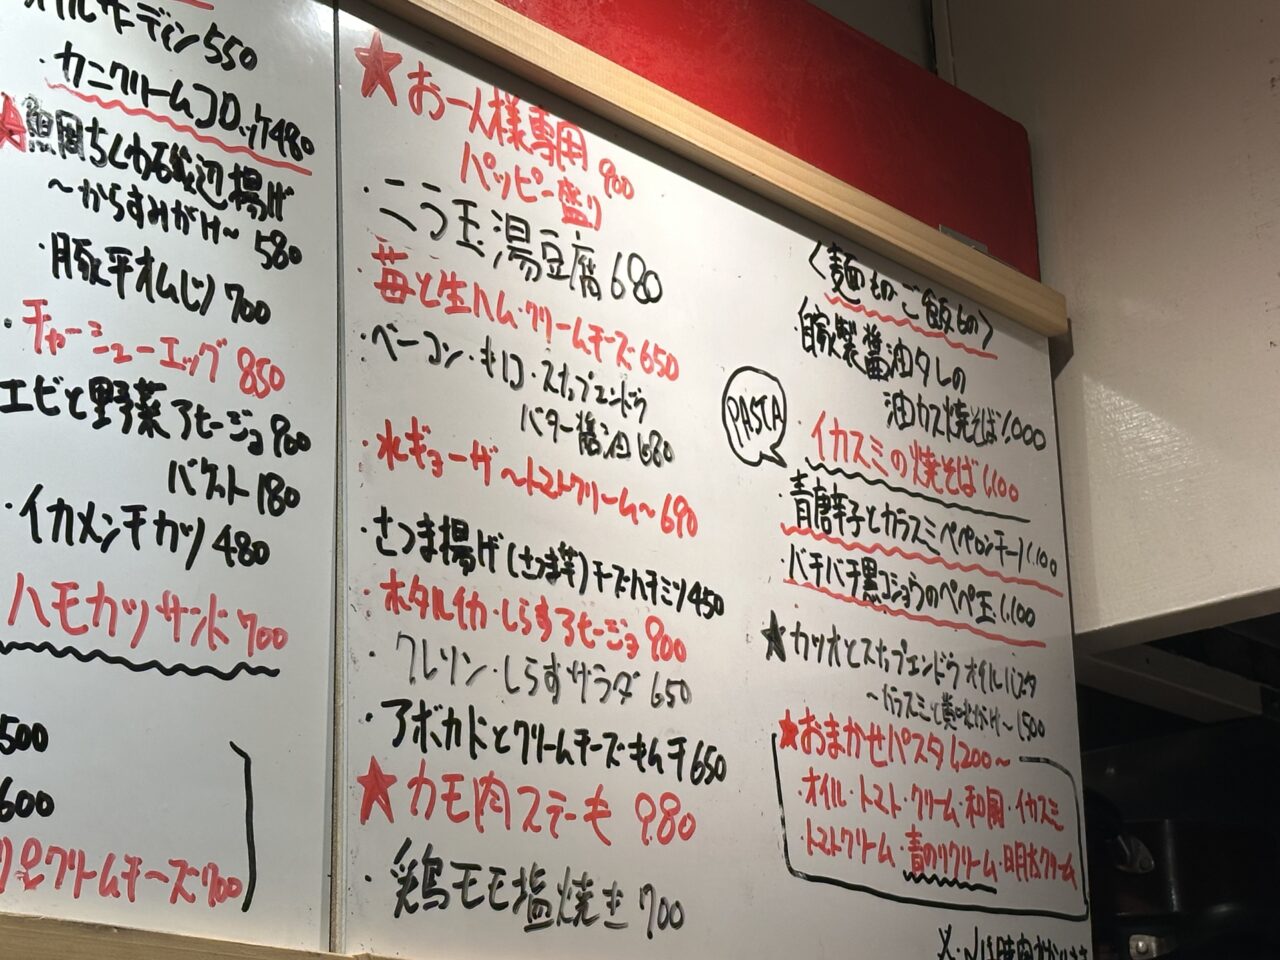 オイルサーディン550
・カニクリームコロッケ480
ちくわ磯辺揚げ
〜からすみがけ〜 580
・豚平オムレツ 700
・チャーシューエッグ 850
エビと野菜アヒージョ 900
バケット180
・イカメンチカツ 480
ハモカツサンド 700
500
600
クリームチーズ 700
★お一人様専用 900
ハッピー盛り
・こう玉湯豆腐 680
苺と生ハム・クリームチーズ 650
・ベーコン・キノコ・スナップエンドウ
バター醤油 680
・水ギョーザ〜トマトクリーム〜 690
・さつま揚げ(さつま芋)チーズハチミツ 450
・ホタルイカ・しらすアヒージョ 900
クレソン・しらすサラダ 650
・アボカドとクリームチーズキムチ 650
★カモ肉ステーキ 980
・鶏モモ塩焼き 700
〈麺ものご飯もの〉
・自家製醤油ダレの
油カス焼そば 1,000
PASTA
・イカスミの焼そば 1,100
・青唐辛子とカラスミペペロンチーノ 1,100
・バチバチ黒コショウのペペ玉 1,100
★カツオとスナップエンドウオイルパスタ
〜カラスミと黄味がけ〜 1,500
★おまかせパスタ 1,200〜
・オイル・トマト・クリーム・和風・イカスミ
・トマトクリーム・青のりクリーム・明太クリーム